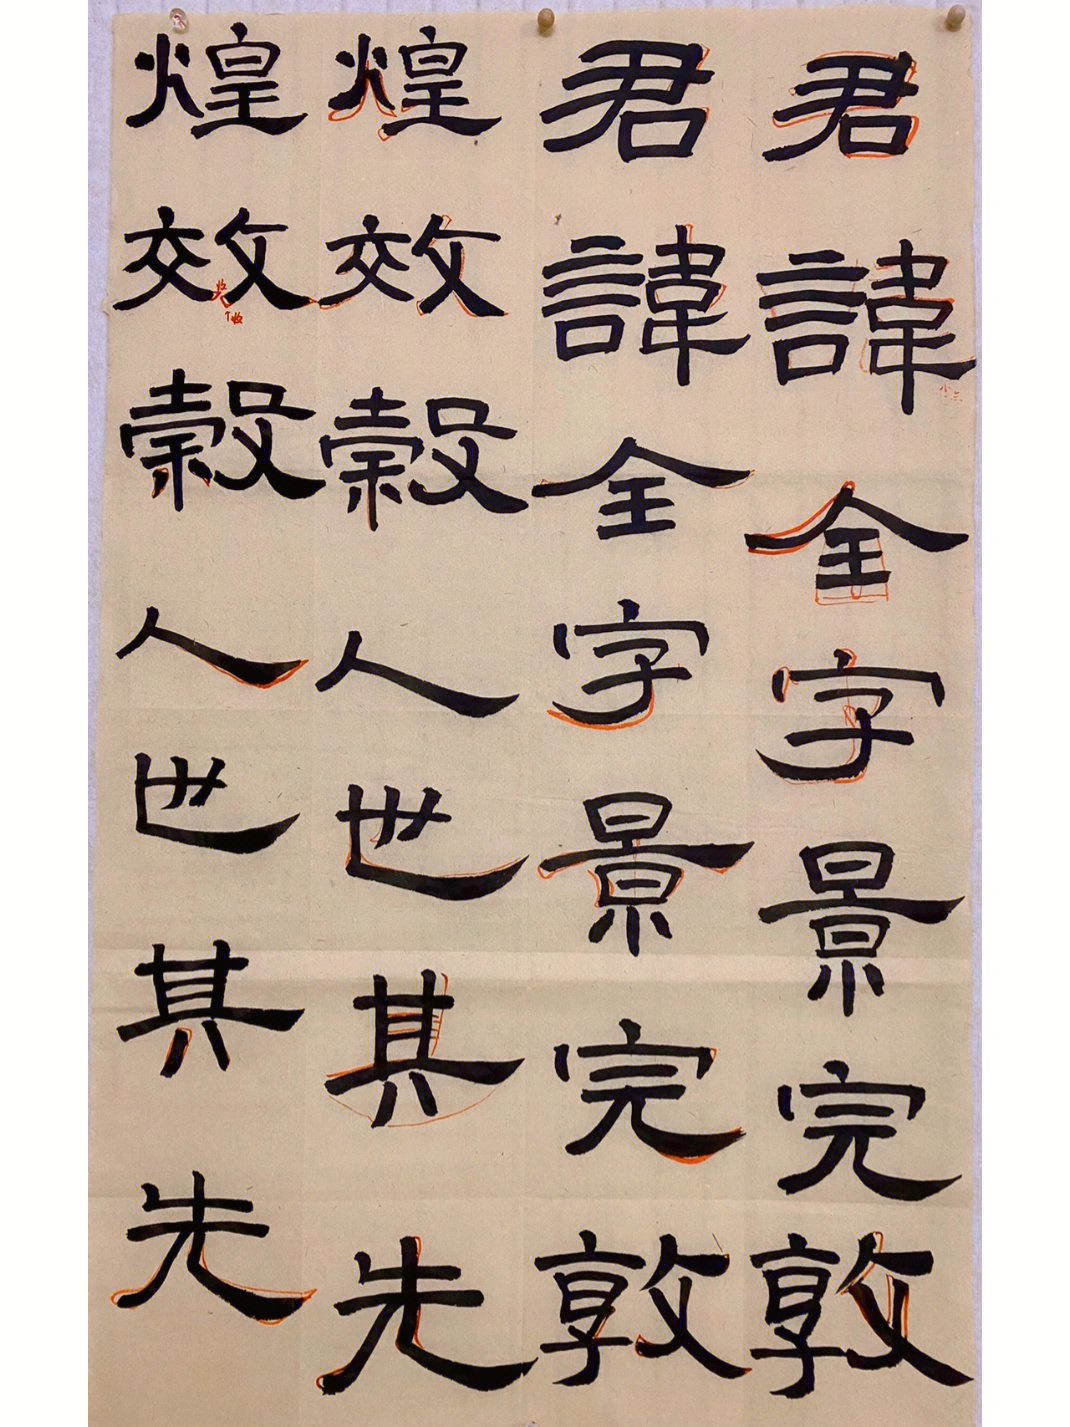 君諱全字景完敦
君諱全字景完敦
煌效穀人世其先
煌效穀人世其先